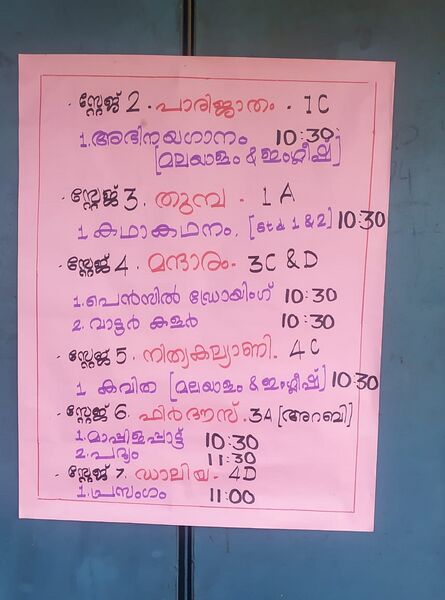 സ്റ്റേജ് 2. പാരിജാതം. 1C
1. അഭിനയഗാനം 10:30
[മലയാളം & ഇംഗ്ലീഷ്]
സ്റ്റേജ് 3. തുമ്പ - 1A
1 കഥാകഥനം. [Std 1 & 2] 10:30
സ്റ്റേജ് 4. മന്ദാരം- 3C & D
1. പെൻസിൽ ഡ്രോയിംഗ് 10:30
2. വാട്ടർ കളർ 10:30
സ്റ്റേജ് 5. നിത്യകല്യാണി. 4C
1 കവിത [മലയാളം & ഇംഗ്ലീഷ്] 10:30
സ്റ്റേജ് 6. ഫിർദൗസ്. 3A [അറബി]
1. മാപ്പിളപ്പാട്ട് 10:30
2. പദ്യം 11:30
സ്റ്റേജ് 7. ഡാലിയ. 4D
1. പ്രസംഗം 11:00